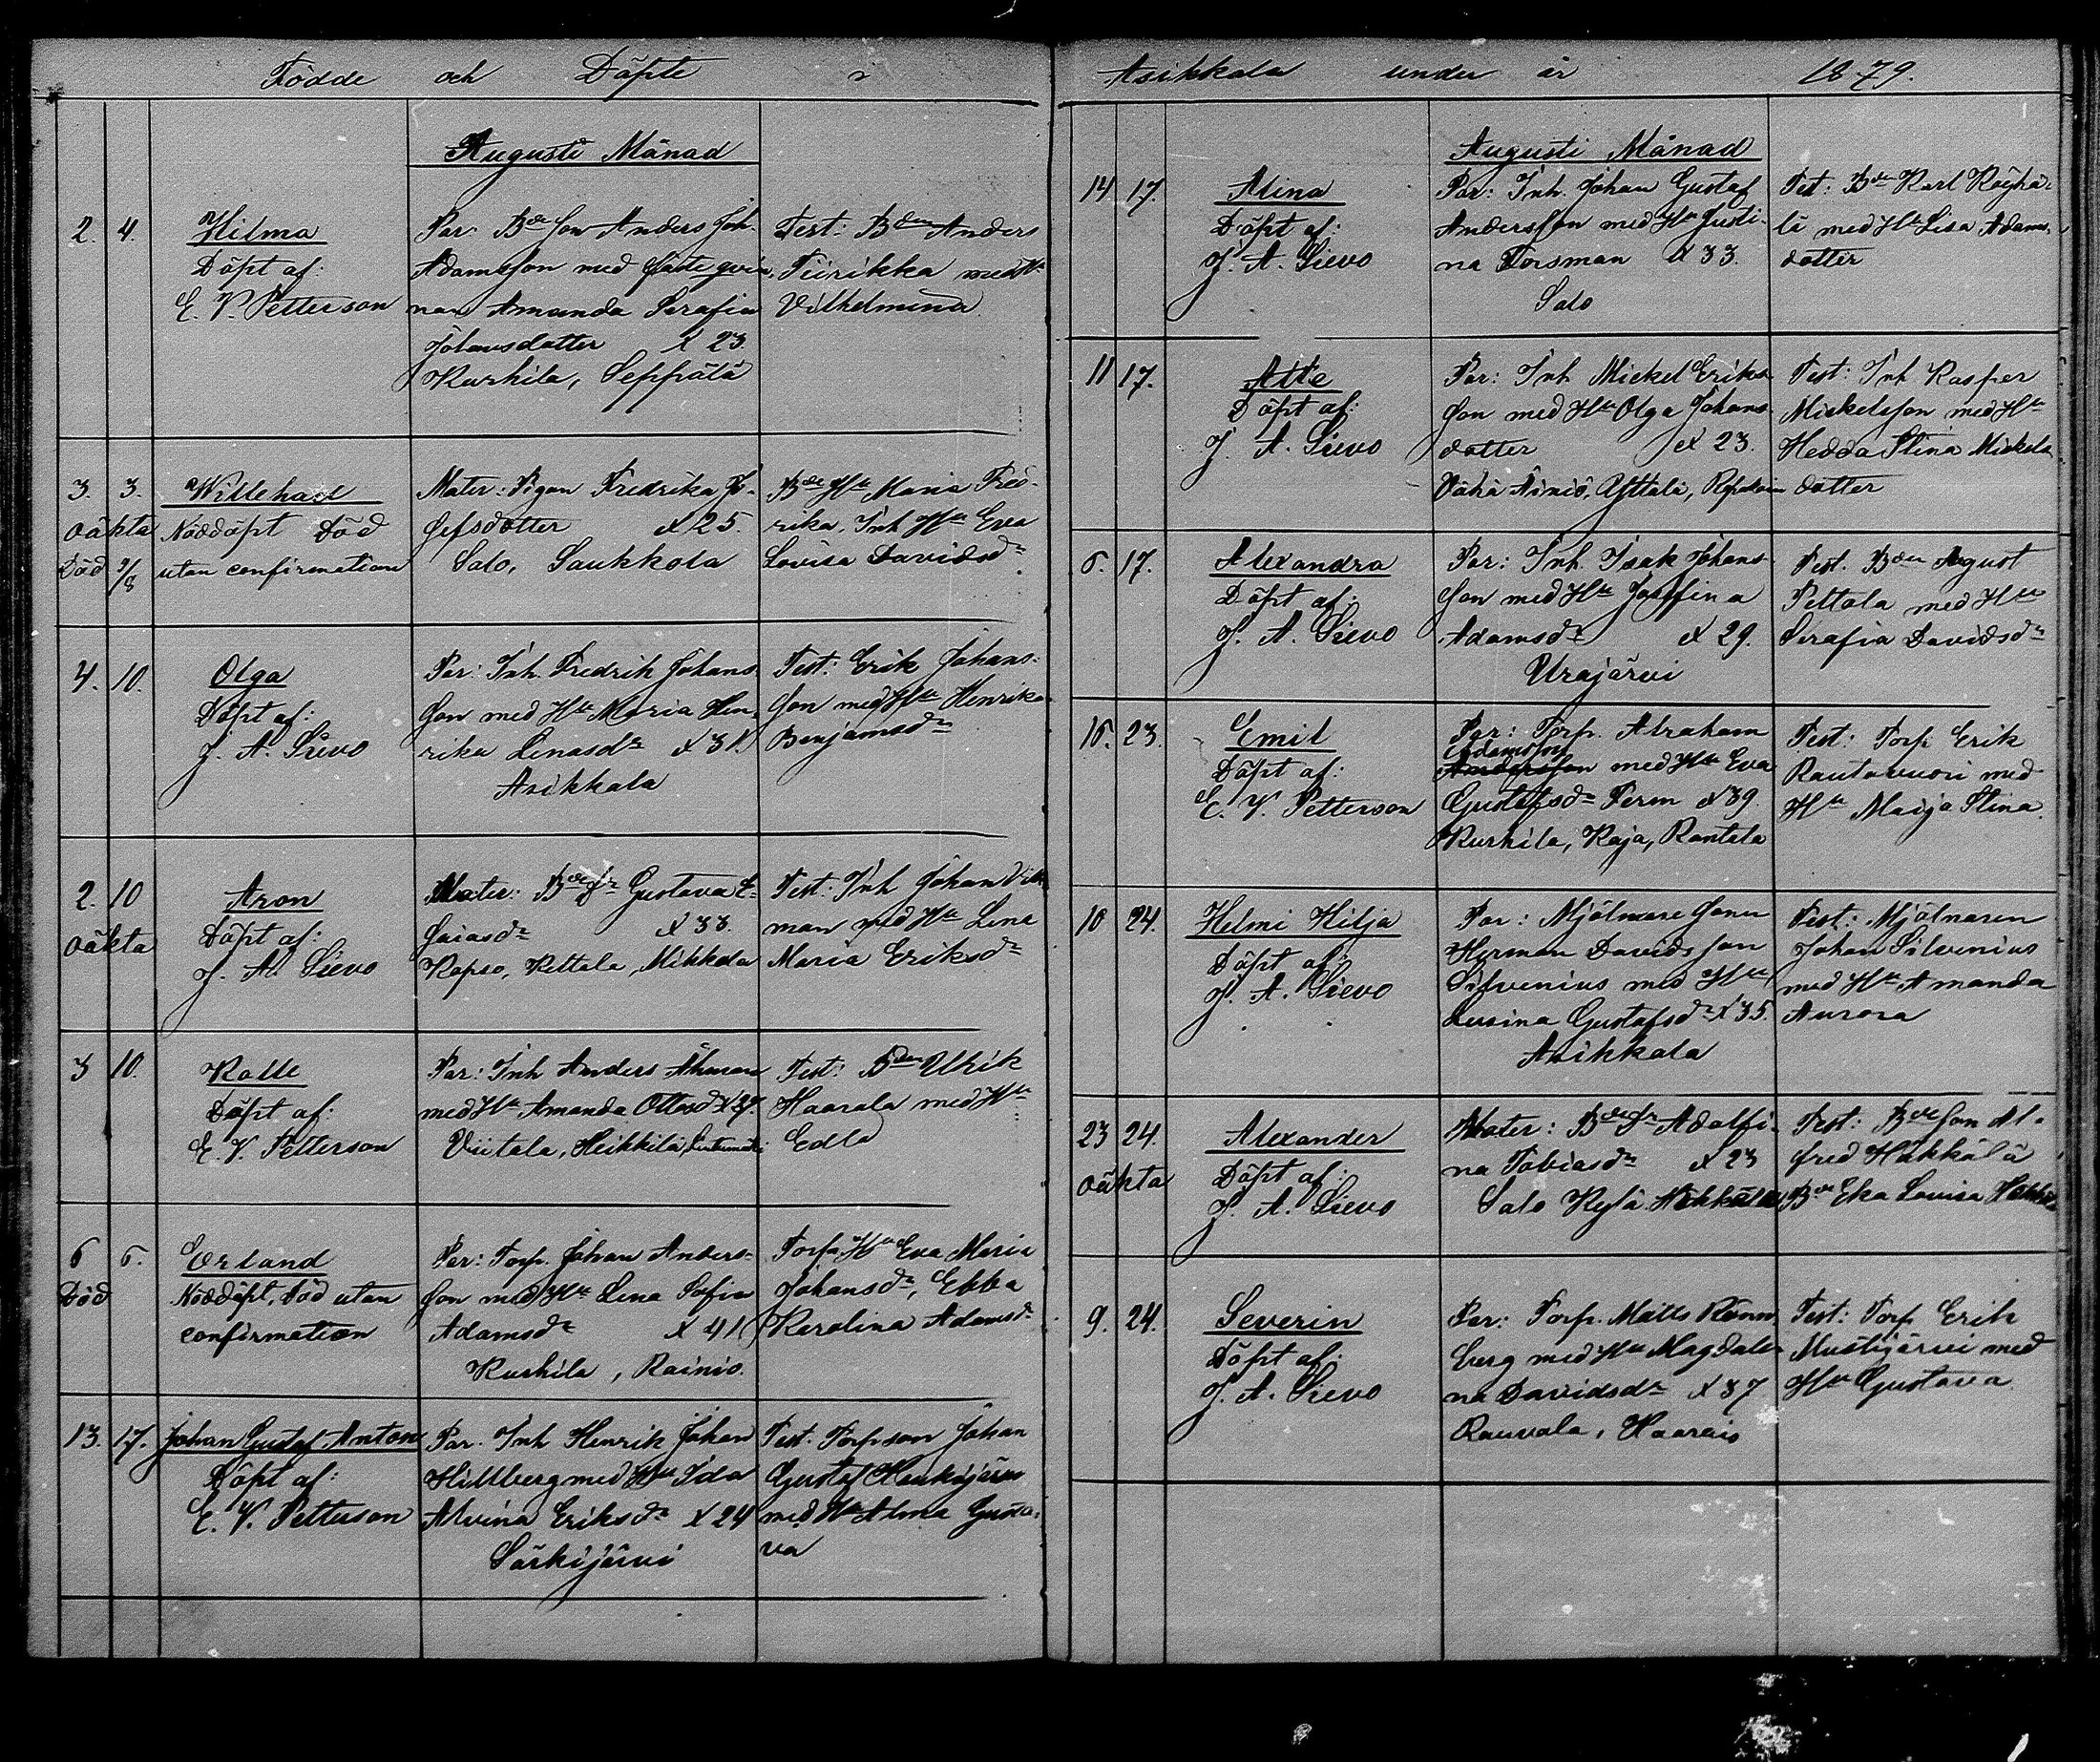 Födde och Döpte i Asikkala under år 1879.
Augusti Månad
2. 4. Hilma
Döpt af:
E. V. Petterson
Par: Bde Son Anders Joh.
Adamsson med fästeqvin
nan Amanda Serafia
Johansdotter x 23
Kurhila, Seppälä
Test: Bden Anders
Tiirikka med H
Vilhelmina
3. 3. Willehad
oäkta Nöddöpt Död
Död 9/8 utan confirmation
Mater: Pigan Fredrika Jo-
sefsdotter x 25.
Salo, Saukkola
Bde Hu Maria Fred-
rika, Inh Hu Eva
Lovisa Davidsdr
4. 10. Olga
Döpt af:
J. A. Sievo
Par: Inh. Fredrik Johans
son med Hu Maria Hen-
rika Enasdr x 31.
Asikkala
Test: Erik Johans-
son med Hu Henrika
Benjamsdr
2. 10 Aron
oäkta Döpt af:
J. A. Sievo
Mater: Bde Dr Gustava E-
saiasdr x 33.
Kopso, Kettala, Mikkola
Test: Inh Johan
man med Hu Lena
Maria Eriksdr
3 10. Kalle
Döpt af:
E. V. Petterson
Par: Inh Anders Åhman
med Hu Amanda Ottosdr x 27.
Viitala, Heikkilä,
Test: Bden Ulrik
Haarala med Hu
Edla
6 6. Erland
Död Nöddöpt, död utan
confirmation
Par: Torp. Johan Anders-
son med Hu Lena Sofia
Adamsdr x 41
Kurhila, Rainio.
Torp. Hu Eva Maria
Johansdr, Ebba
Karolina Adamsdr
13. 17. Johan Gustaf Anton
Döpt af:
E. V. Petterson
Par. Inh Henrik Johan
Hillberg med Hu Ida
Alvina Eriksdr x 24
Särkijärvi
Test. Torpson Johan
Gustaf Haukijärvi
med Hu Alma Gusta-
va
Augusti Månad
14 17. Alina
Döpt af:
J. A. Sievo
Par: Inh. Johan Gustaf
Andersson med Hu Justi-
na Forsman x 33.
Salo
Test: Bde Karl Röyhä-
lä med Hu Lisa Adams-
dotter
11 17. Atte
Döpt af:
J. A. Sievo
Par: Inh Mickel Eriks
son med Hu Olga Johans
dotter x 23.
Vähä Äiniö,
Test: Inh Kasper
Mickelsson med Hu
Hedda Stina Mickels
dotter
6. 17. Alexandra
Döpt af:
J. A. Sievo
Par: Inh. Isak Johans-
son med Hu Josefina
Adamsdr x 29.
Urajärvi
Test. Bden August
Peltola med Hu
Serafia Davidsdr
16. 23. Emil
Döpt af:
E. V. Petterson
Par: Torp. Abraham
Adamsson
Andersson med Hu Eva
Gustafsdr Ferm x 39.
Kurhila, Kaja, Rantala
Test: Torp Erik
Rautavuori med
Hu Maija Stina.
10 24. Helmi Hilja
Döpt af:
J. A. Sievo
Par: Mjölnare sonen
Herman Davidsson
Silvenius med Hu
Eusina Gustafsdr x 35.
Asikkala
Test: Mjölnaren
Johan Silvenius
med Hu Amanda
Aurora
23 24. Alexander
oäkta Döpt af:
J. A. Sievo
Mater: Bde Dr Adolfi-
na Tobiasdr x 23
Salo Kylä Häkkälä
Test: Bde Son Al-
fred Häkkälä
Bde Eka Lovisa
9. 24. Severin
Döpt af:
J. A. Sievo
Par: Torp. Matts Rönn
berg med Hu Magdale-
na Davidsdr x 37
Rauvala, Haarais
Test: Torp Erik
Mustijärvi med
Hu Gustava